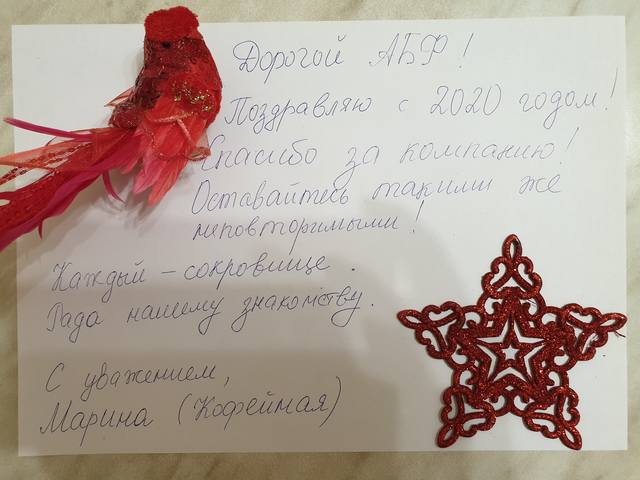 Дорогой АБФ!
Поздравляю с 2020 годом!
Спасибо за компанию!
Оставайтесь такими же
неповторимыми!
Каждый – сокровище.
Рада нашему знакомству.
С уважением,
Марина (Кофейная)